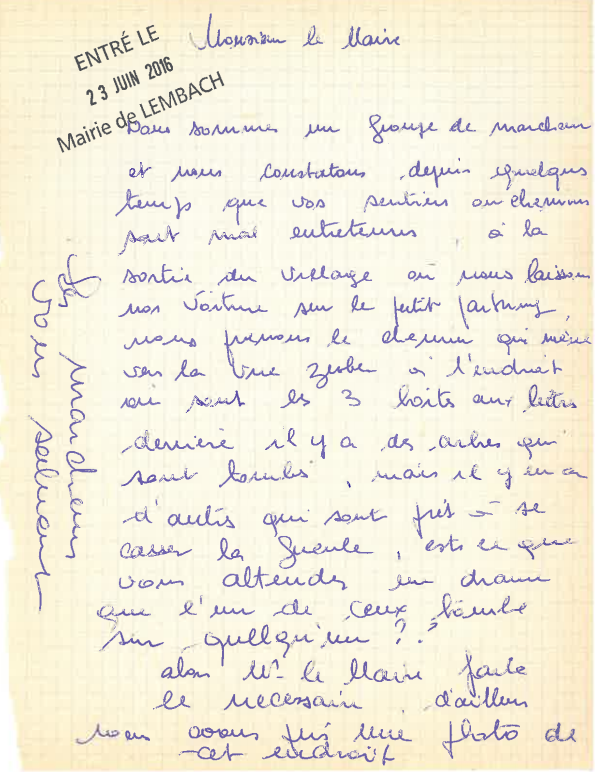 ENTRÉ LE
23 JUIN 2016
Mairie de LEMBACH
Monsieur le Maire
Nous sommes un groupe de marcheurs
et nous constatons depuis quelques
temps que vos sentiers ou chemins
sont mal entretenus, à la
sortie du village où nous laissons
nos voiture sur le petit parking,
nous prenons le chemin qui mène
vers la rue à l'endroit
où sont les 3 boits aux lettres
derrière il y a des arbres qui
sont tombés, mais il y en a
d'autres qui sont près à se
casser la gueule, ests ce que
vous attendez un drame
que l'un de ceux tombe
sur quelqu'un ??
alors Mr le Maire faite
le necessaire, d'ailleurs
nous avons pris une photo de
cet endroit
Les marcheurs
vous saluent